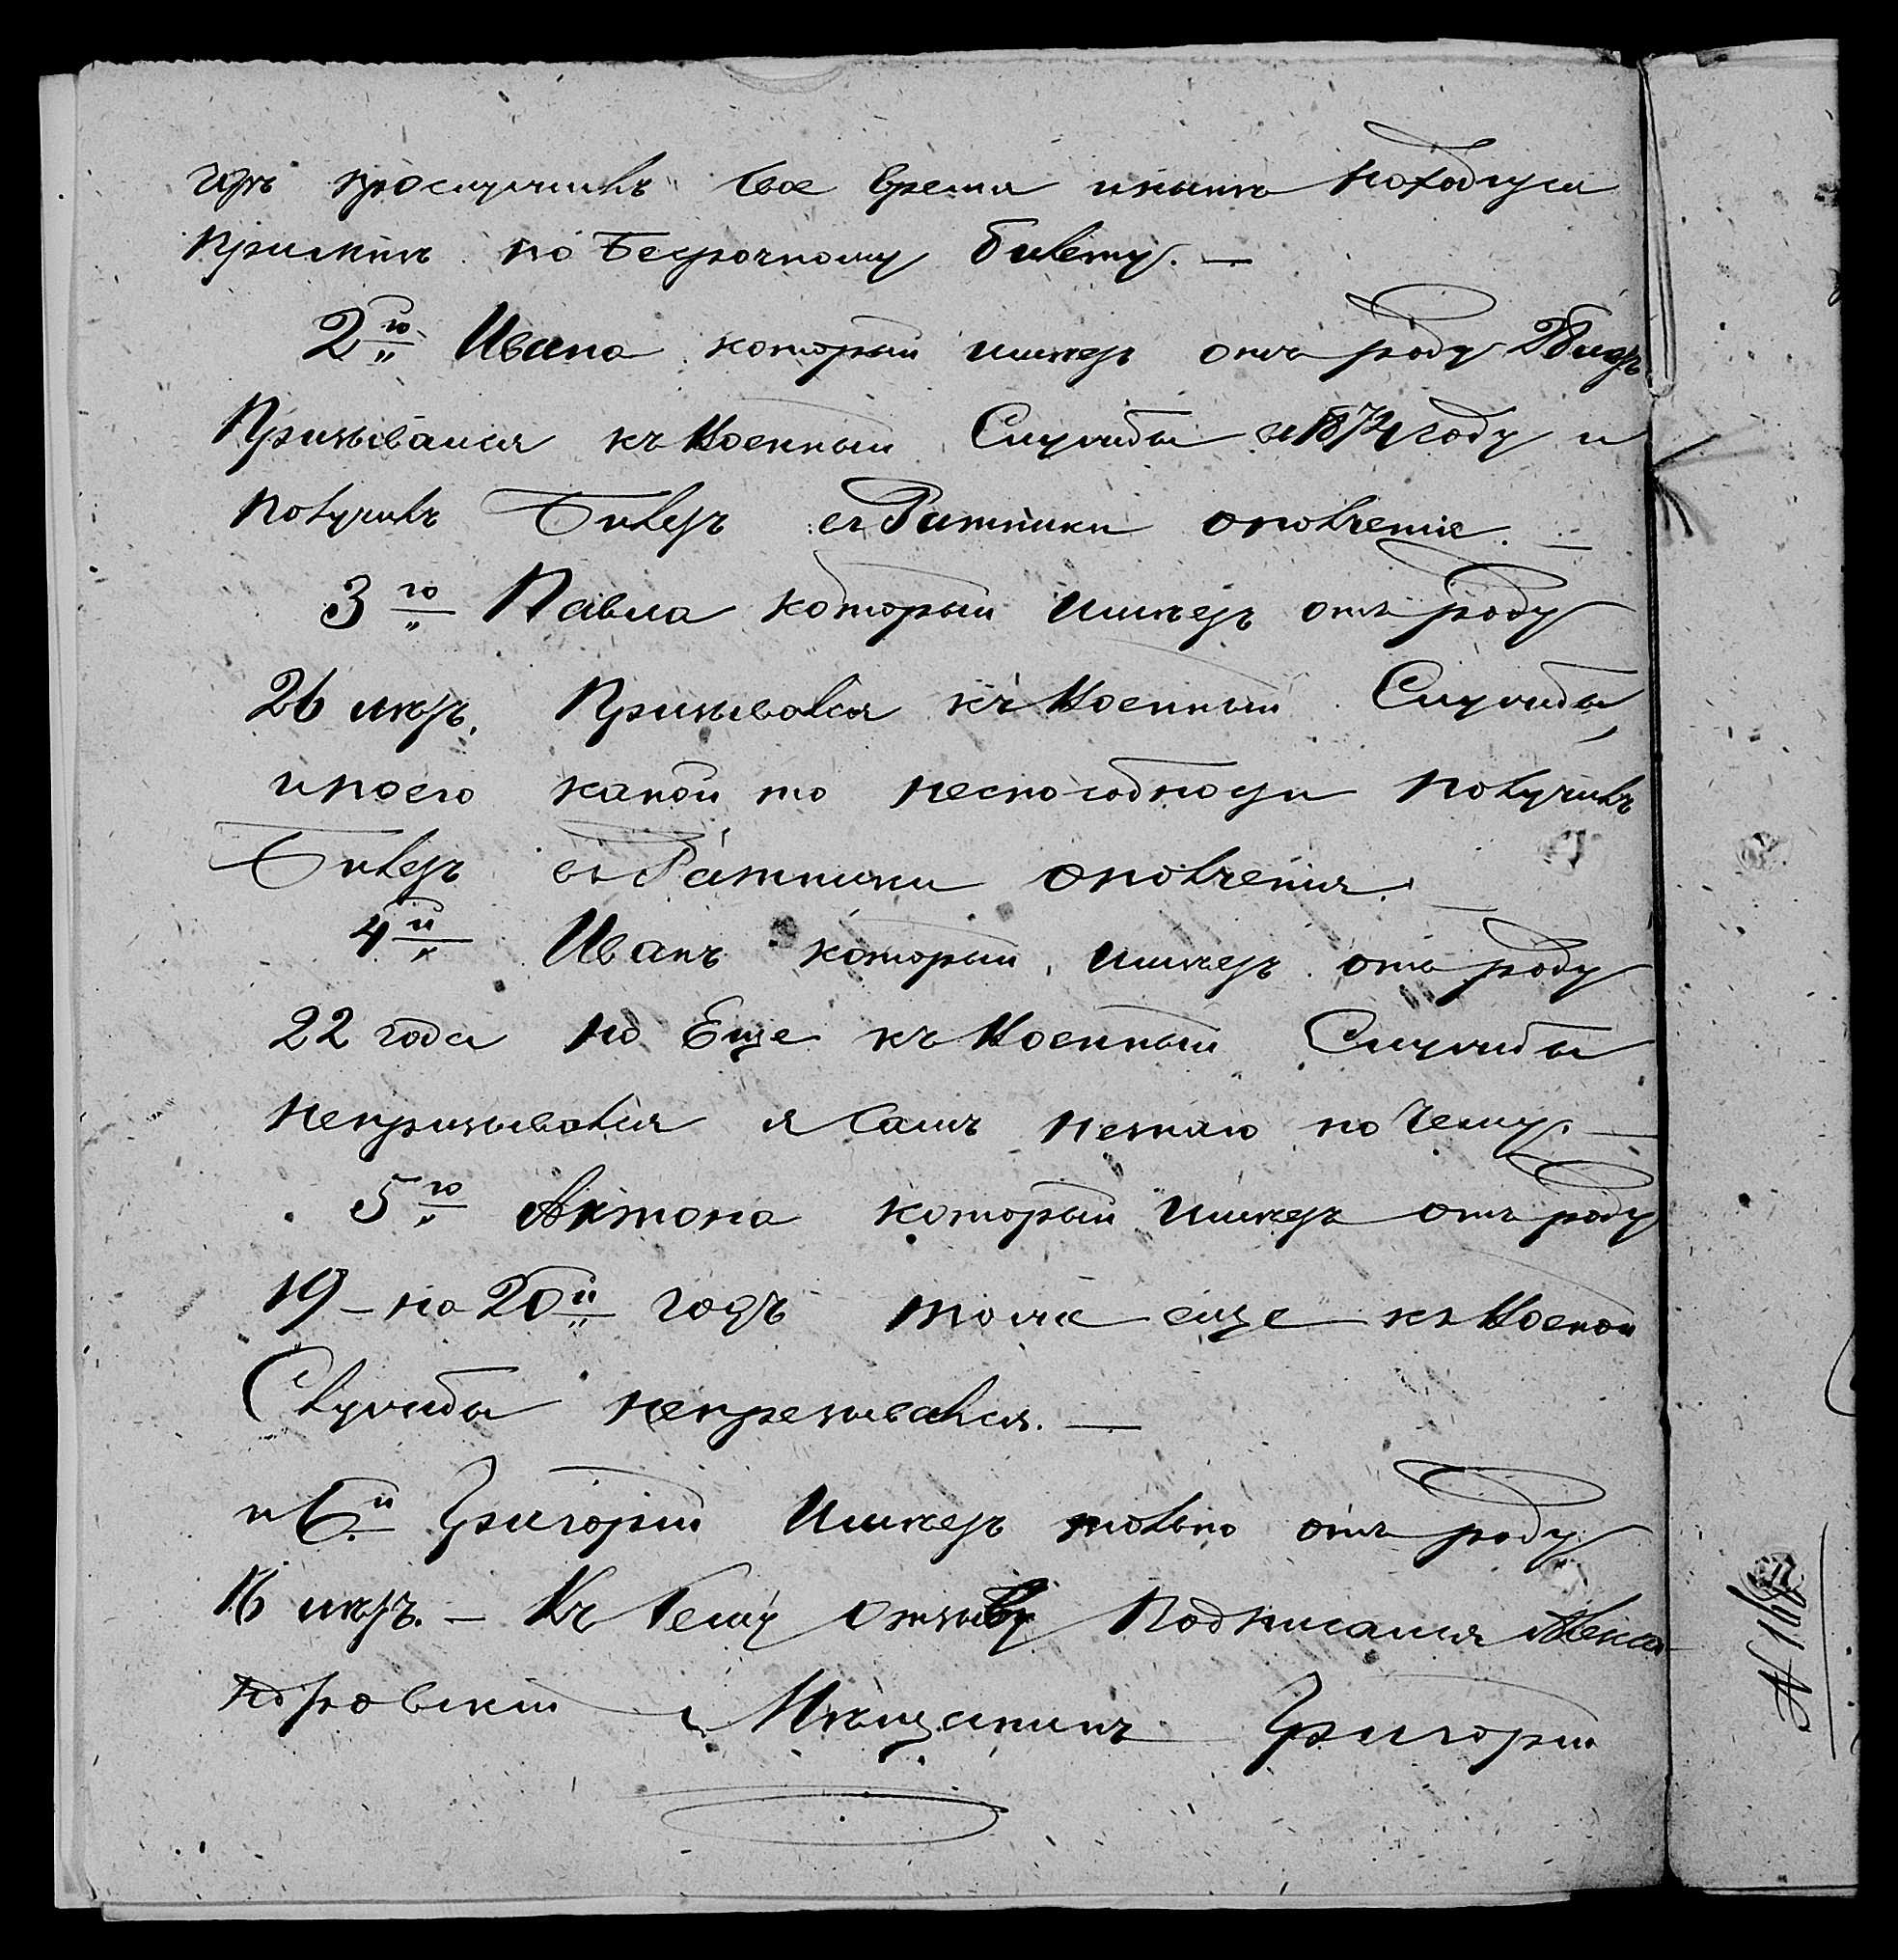 прослуживъ свое время инынѣ находится
примнѣ по Бесрочному билету. —
2го Ивана который имѣетъ отъ роду 28 лѣтъ
Призывался къ Военный Службы въ 1874 году и
получилъ Билетъ въ Ратники ополченія. —
3го Павла который имѣетъ отъ роду
26 лѣтъ. Призывался къ Военный Службы,
ипоего какой то неспособности получилъ
Билетъ въ Ратники ополченія. —
4й Иванъ который имѣетъ отъ роду
22 года но Еще къ Военный Службы
непризывался я самъ незнаю по чему. —
5го Антона который имѣетъ отъ роду
19 – на 20й годъ тоже еще къ Военой
Службы непрезывался. —
и 6й Григорій Имѣетъ только отъ роду
16 лѣтъ. — Къ сему отзыву Подписался Алекса
ндровскій Мѣщанинъ Григорій
N 1166